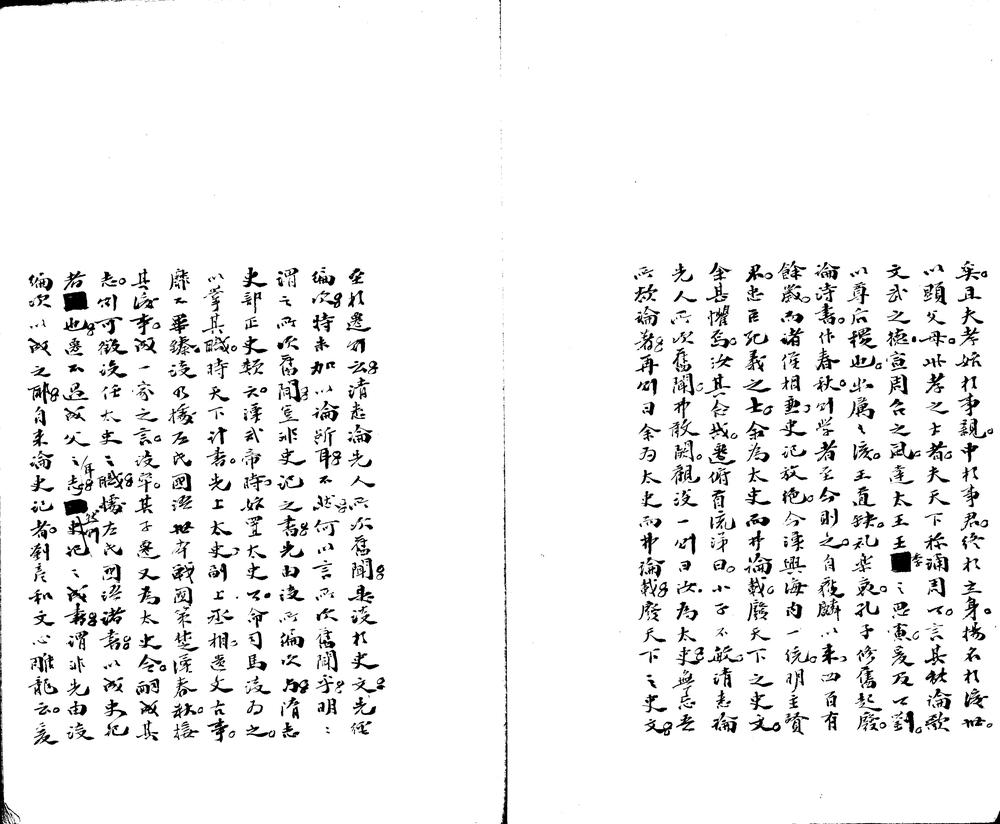 矣。且夫孝始於事親。中於事君。終於立身。揚名於後世。
以顯父母。此孝之大者。夫天下称誦周公。言其能論歌
文武之德。宣周召之風。達太王王季之思慮。爰及公劉。
以尊后稷也。幽厲之後。王道缺。礼樂衰。孔子修舊起廢。
論詩書。作春秋。則学者至今則之。自獲麟以来。四百有
餘歲。而諸侯相兼。史記放絶。今漢興。海内一統。明主賢
君。忠臣死義之士。余為太史而弗論載。廢天下之史文。
余甚懼焉。汝其念哉。遷俯首流涕曰。小子不敏。請悉論
先人所次舊聞。弗敢闕。觀談一則曰汝為太史。無忘吾
所欲論著。再則曰余為太史而弗論載。廢天下之史文。
至於遷則云請悉論先人所次舊聞。是談於史文先經
編次。特未加以論断耳。不然何以言所次舊聞乎。明明
謂之所次舊聞。豈非史記之書。先由談所編次乎。隋志
史部正史類云。漢武帝時。始置太史公。命司馬談為之。
以掌其職。時天下計書。先上太史。副上丞相。遺文古事。
靡不畢臻。談乃據左氏國語世本戰國策楚漢春秋。接
其後事。成一家之言。談卒。其子遷又為太史令。嗣成其
志。則可徵談任太史之職。據左氏國語諸書以成史記
者也。遷不過成父之志耳。然則史記之成書。謂非先由談
編次以成之耶。自来論史記者。劉彦和文心雕龍云。爰